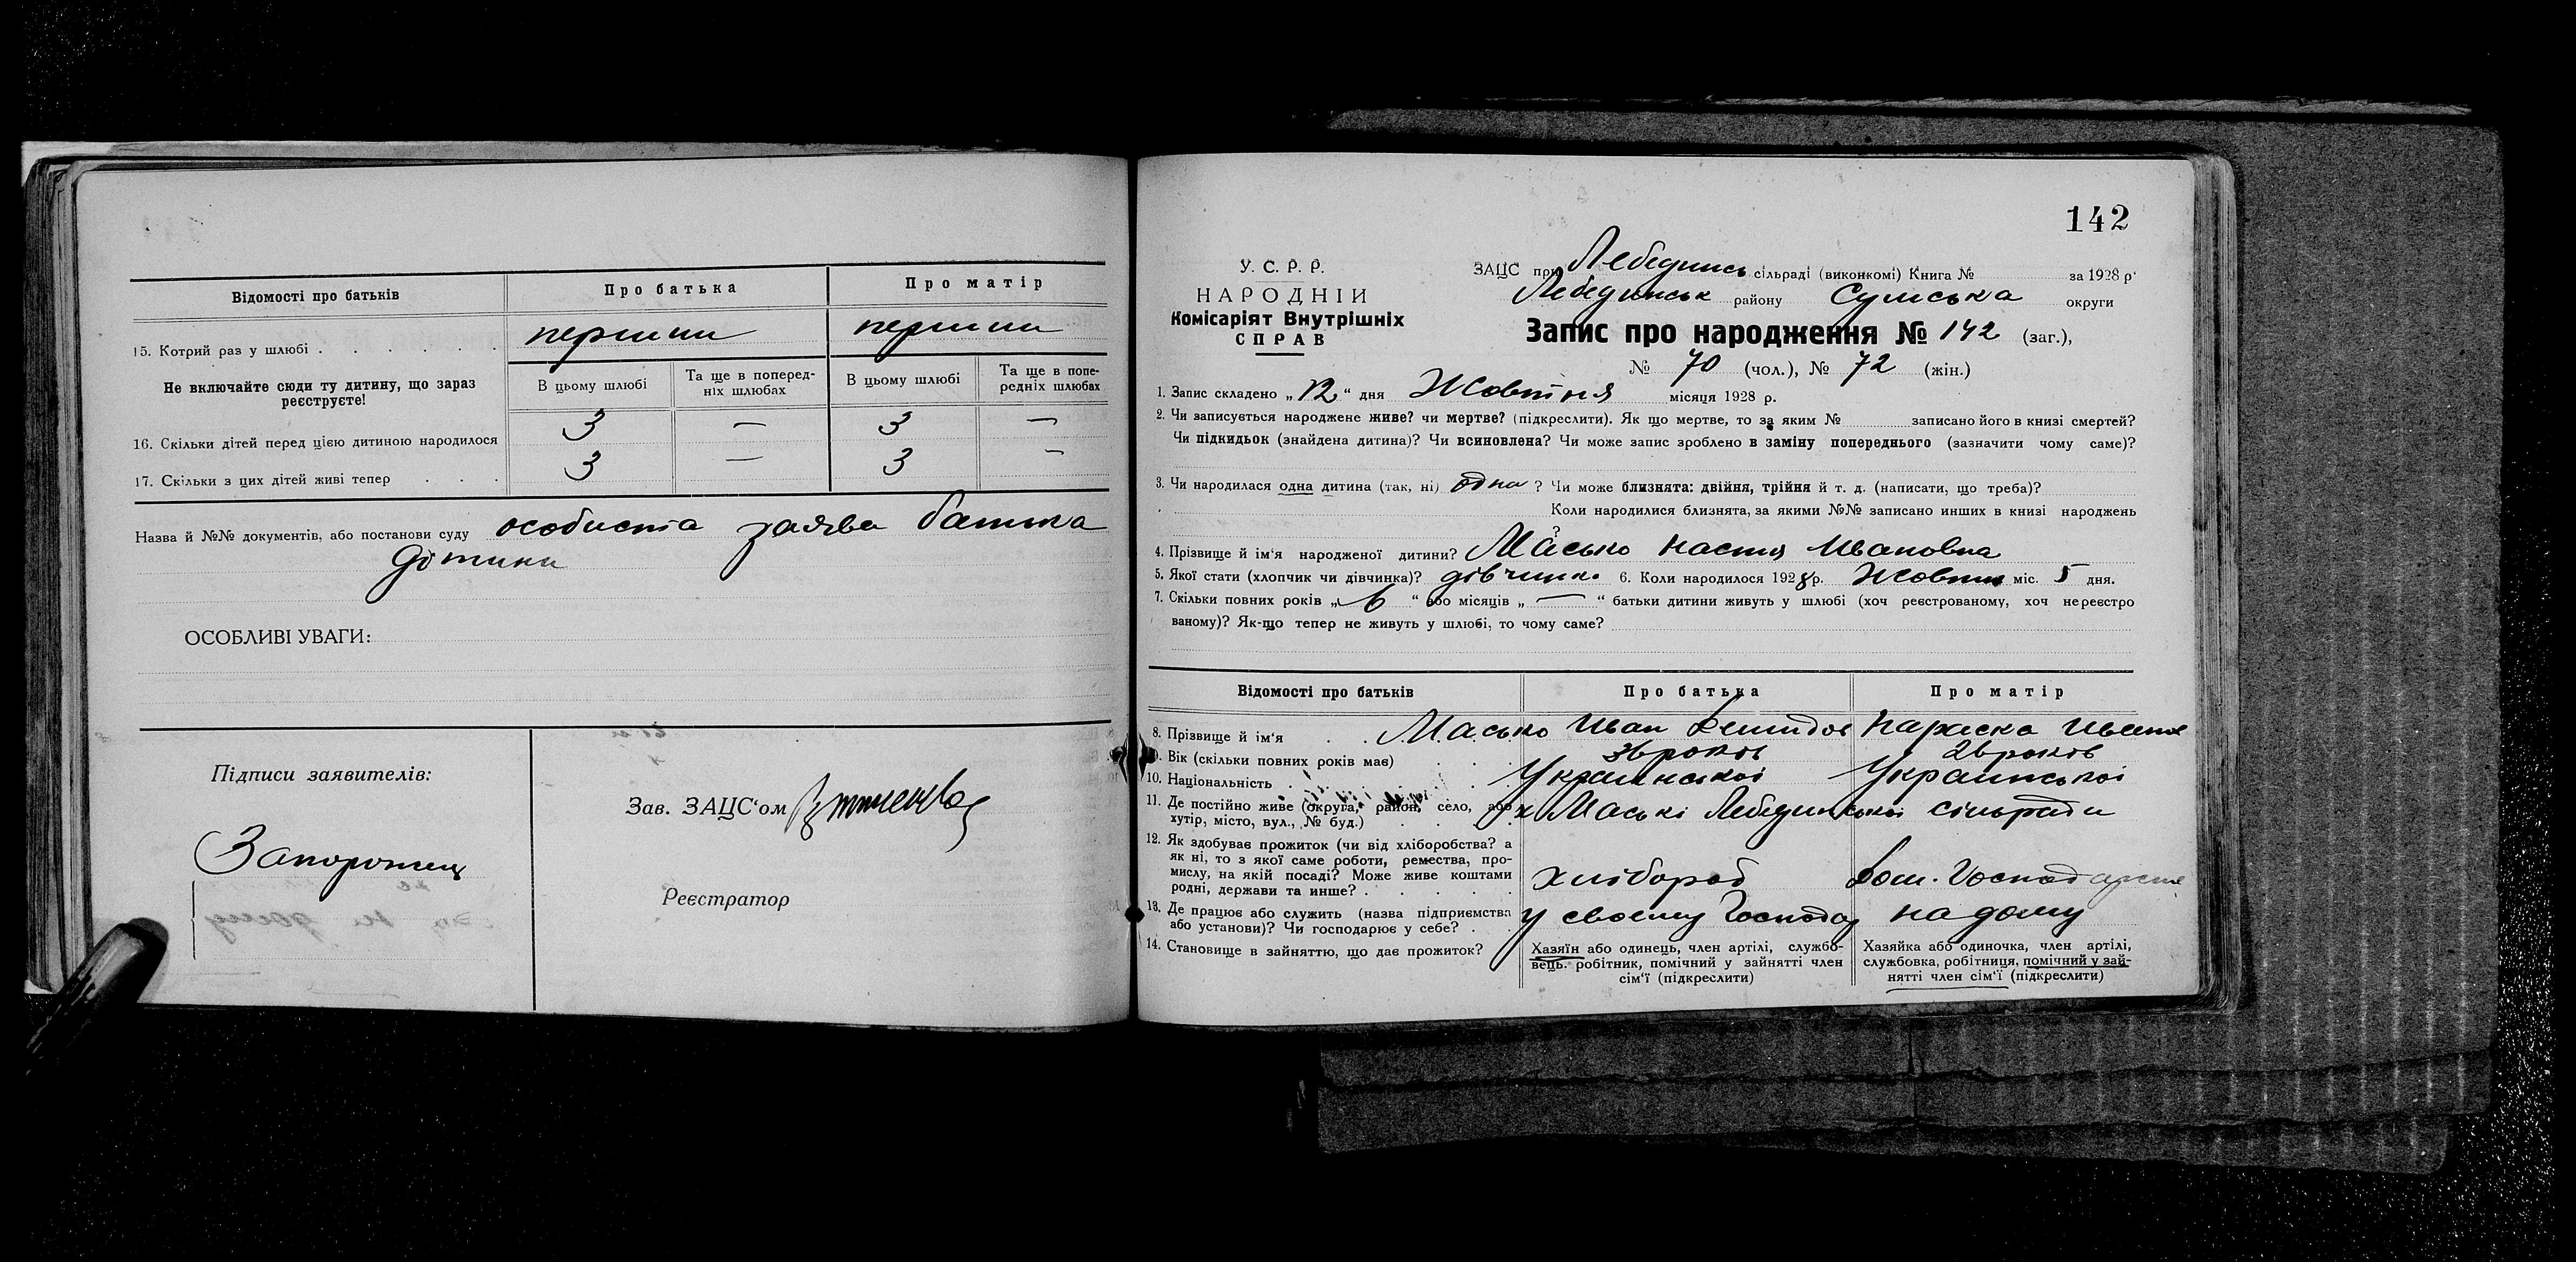 Відомості про батьків
Про батька
Про матір
15. Котрий раз у шлюбі . . . . . .
первий
первий
Не включайте сюди ту дитину, що зараз
реєструєте!
В цьому шлюбі
Та ще в поперед-
ніх шлюбах
В цьому шлюбі
Та ще в попе-
редніх шлюбах
16. Скільки дітей перед цією дитиною народилося
3 — 3 —
17. Скільки з цих дітей живі тепер . . .
3 — 3 -
Назва й №№ документів, або постанови суду особиста заява батька
дитини
ОСОБЛИВІ УВАГИ:
Підписи заявителів:
Запорожец
Зав. ЗАЦС'ом
Реєстратор
142
У. С. Р. Р.
НАРОДНІЙ
Комісаріят Внутрішніх
СПРАВ
ЗАЦС при Лебединсь сільраді (виконкомі) Книга № за 1928 р.
Лебединськ району Сумська округи
Запис про народження № 142 (заг.),
№ 70 (чол.), № 72 (жін.)
1. Запис складено „12“ дня Жовтня місяця 1928 р.
2. Чи записується народжене живе? чи мертве? (підкреслити). Як що мертве, то за яким № записано його в книзі смертей?
Чи підкидьок (знайдена дитина)? Чи всиновлена? Чи може запис зроблено в заміну попереднього (зазначити чому саме)?
3. Чи народилася одна дитина (так, ні) одна ? Чи може близнята: двійня, трійня й т. д. (написати, що треба)?
Коли народилися близнята, за якими №№ записано инших в книзі народжень
?
4. Прізвище й ім'я народженої дитини? Масько Настя Ивановна
5. Якої стати (хлопчик чи дівчинка)? дівчинк. 6. Коли народилося 1928 р. Жовтня міс. 5 дня.
7. Скільки повних років „6“ або місяців „—“ батьки дитини живуть у шлюбі (хоч реєстрованому, хоч нереєстро
ваному)? Як-що тепер не живуть у шлюбі, то чому саме?
Відомості про батьків
Про батька
Про матір
8. Прізвище й ім'я . . Масько Иван Демидов Параска Иванов
9. Вік (скільки повних років має) . . . 36 років 26 років
10. Національність . Украинської Украинської
11. Де постійно живе (округа, район, село, або
хутір, місто, вул., № буд.) . . .
х Маські Лебединської сільради
12. Як здобуває прожиток (чи від хліборобства? а
як ні, то з якої саме роботи, ремества, про-
мислу, на якій посаді? Може живе коштами
родні, держави та инше? . . . . .
хлібороб
дом. Господарств
13. Де працює або служить (назва підприємства
або установи)? Чи господарює у себе? . .
у своєму Господар на дому
14. Становище в зайняттю, що дає прожиток?
Хазяїн або одинець, член артілі, службо-
вець. робітник, помічний у зайнятті член
сім'ї (підкреслити)
Хазяйка або одиночка, член артілі,
службовка, робітниця, помічний у зай-
нятті член сім'ї (підкреслити)